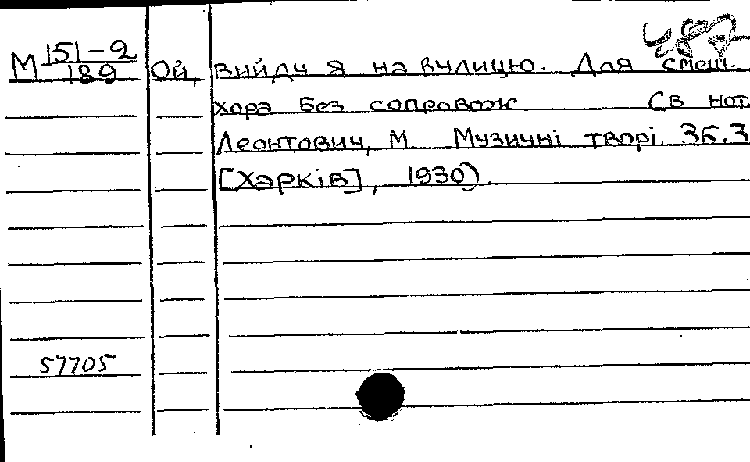 487
М 151-2/189 Ой, вийду я на вулицю. Для смеш.
хора без сопровож (В нот.
Леонтович, М. Музичні творі. Зб.3
[Харків], 1930).
57705